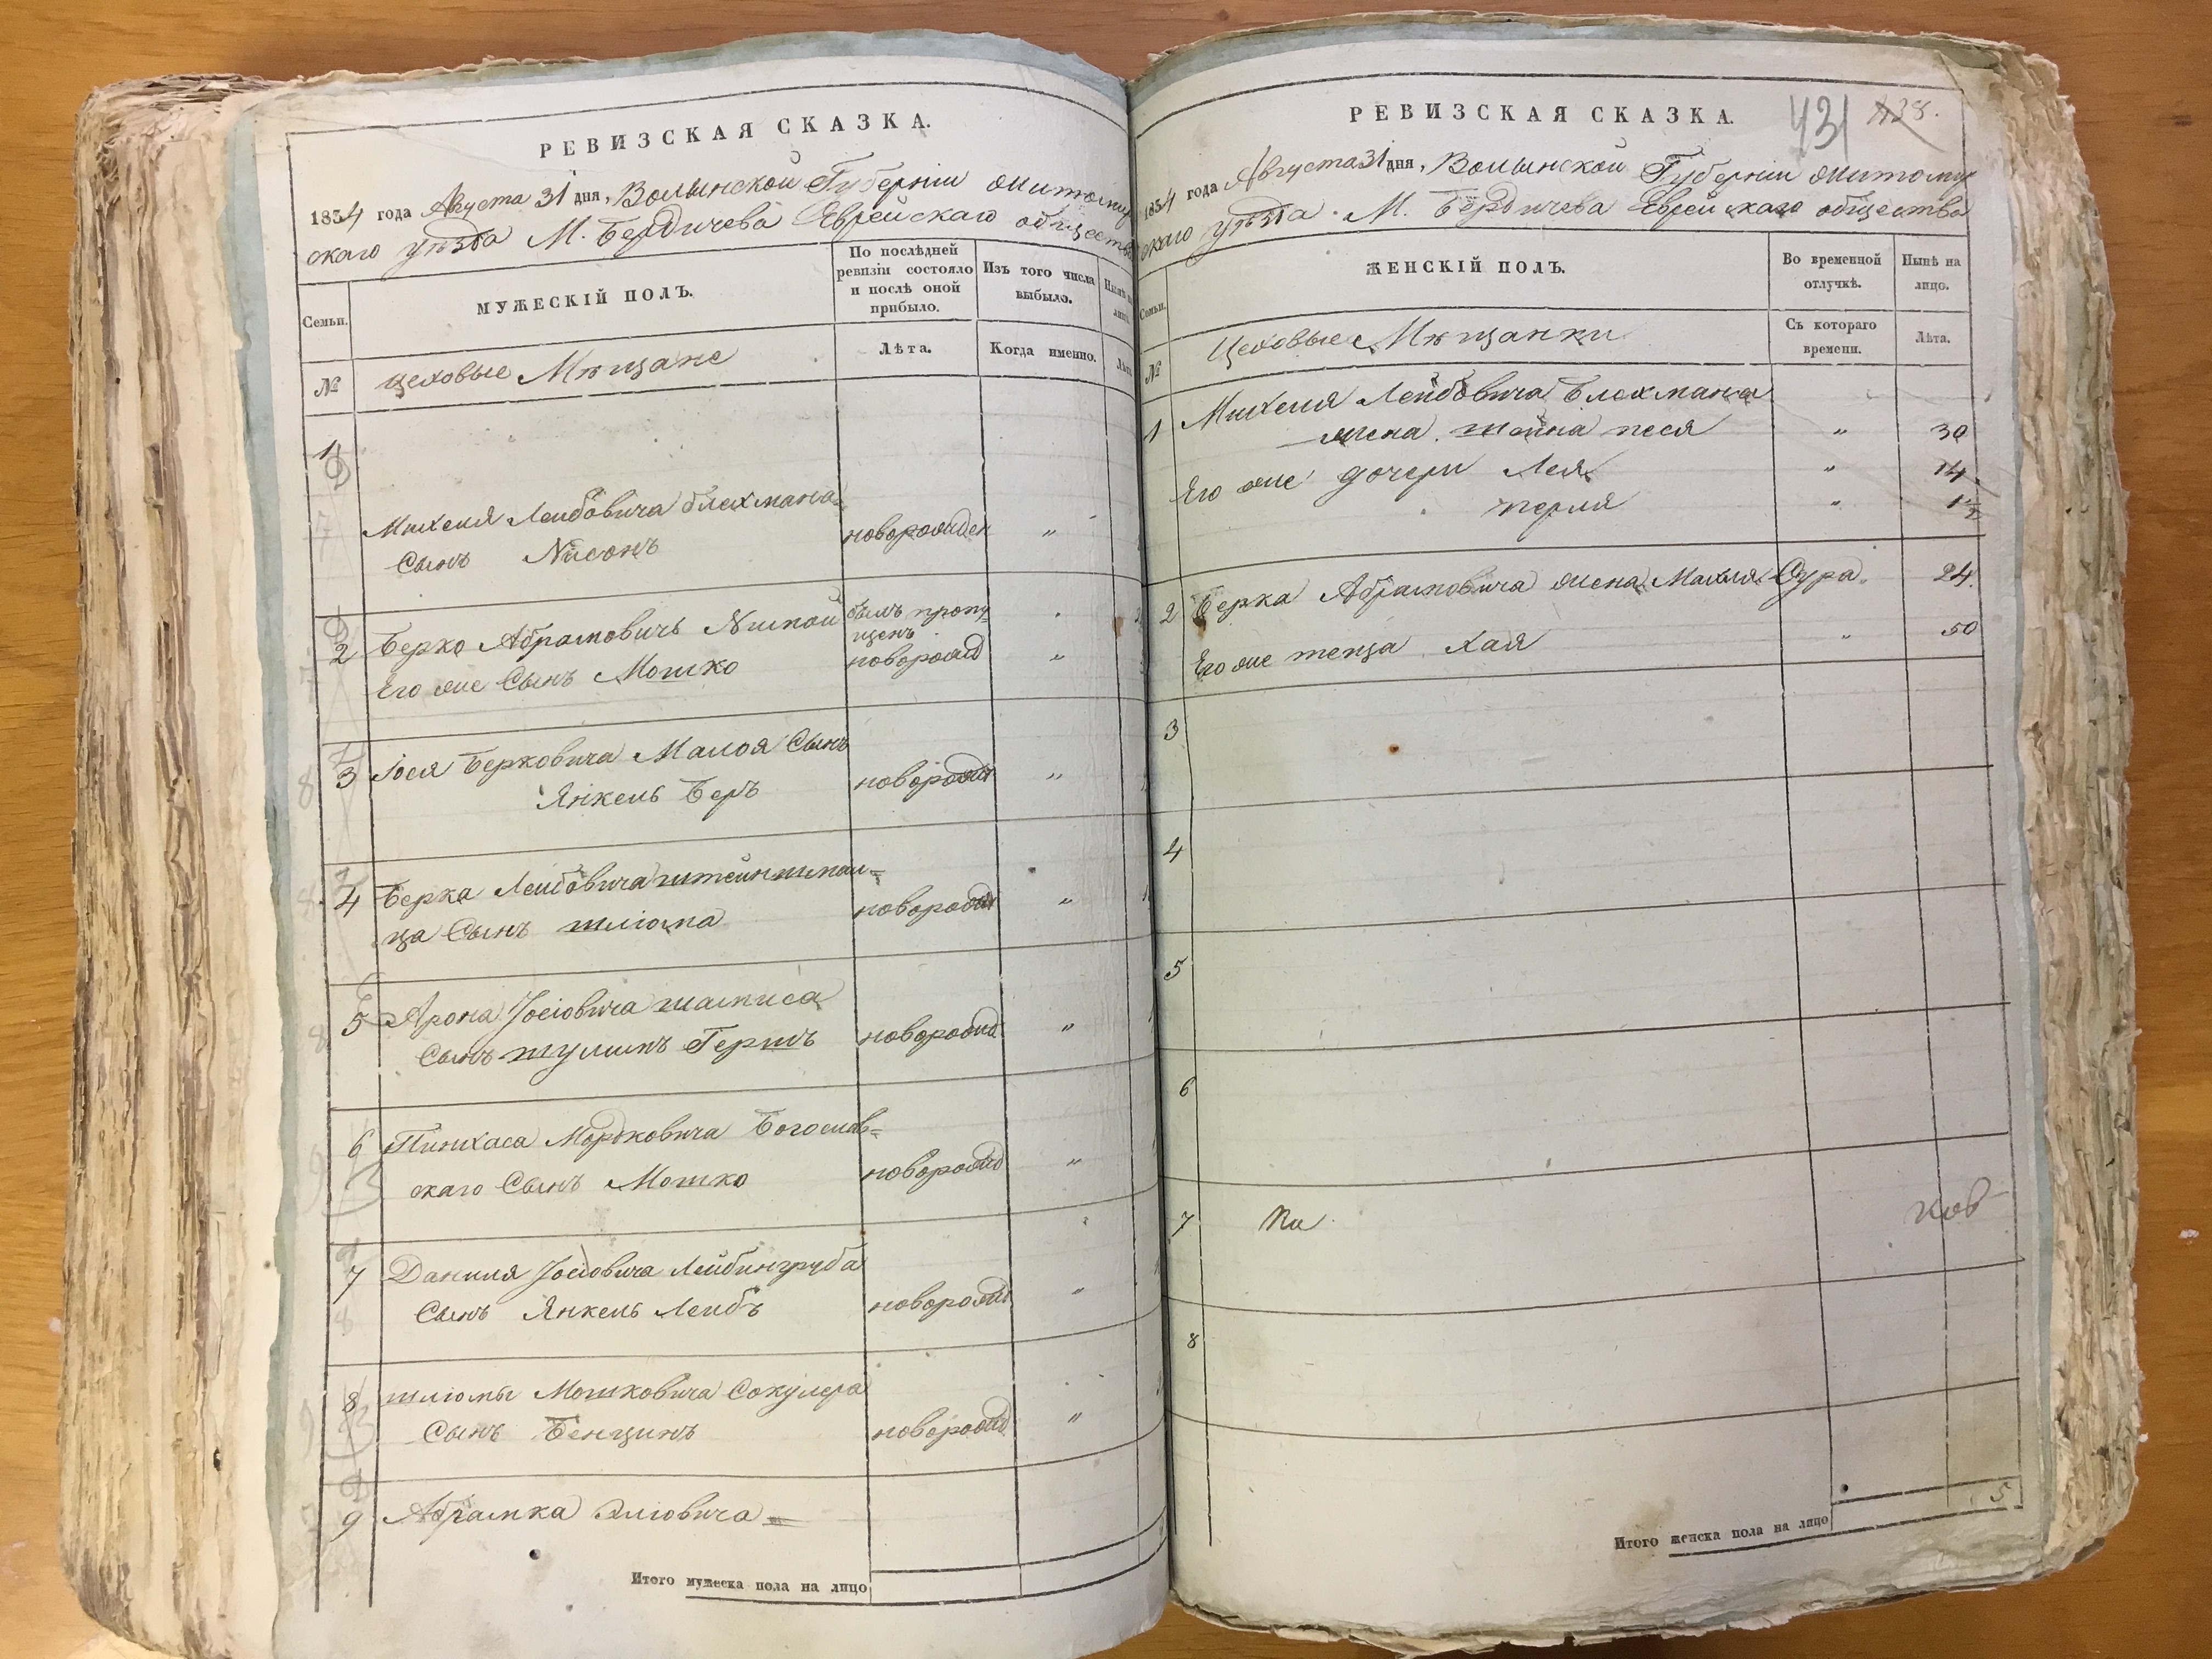 РЕВИЗСКАЯ СКАЗКА.
1854 года Августа 31 дня, Волынской Губерніи Житомир
скаго уѣзда М. Бердичева Еврейскаго общества
Семьи.
МУЖЕСКІЙ ПОЛЪ.
По послѣдней
ревизіи состояло
и послѣ оной
прибыло.
Изъ того числа
выбыло.
№
цеховые Мѣщане
Лѣта.
Когда именно.
1
Михеля Лейбовича Блехмана
Сынъ Нисонъ
новорожден
"
2
Берко Абрамовичъ
былъ пропу=
щенъ
Его же Сынъ Мошко
новорожд
"
3
Іося Берковича Малоя Сынъ
Янкель Беръ
новорожд
"
4
Берка Лейбовича
ца Сынъ Шліома
новорожд
"
5
Арона Іосіовича
Сынъ Шулимъ Гершъ
новорожд
"
6
Пинхаса Мордковича Богослав=
скаго Сынъ Мошко
новорожд
"
7
Даниля Іосіовича Лейбингруба
Сынъ Янкель Лейбъ
новорожд
"
8
Шліомы Мошковича Сокулера
Сынъ Бенционъ
новорожд
"
9
Абрамка Эліовича
Итого мужеска пола на лицо
РЕВИЗСКАЯ СКАЗКА.
431
428.
1854 года Августа 31 дня, Волынской Губерніи Житомир
скаго уѣзда М. Бердичева Еврейскаго общества
Семьи.
ЖЕНСКІЙ ПОЛЪ.
Во временной
отлучкѣ.
Нынѣ на
лицо.
№
Цеховые Мѣщанки
Съ котораго
времени.
Лѣта.
1
Михеля Лейбовича Блехмана
жена Шейна Песя
"
30
Его же дочери Лея
"
14
Перля
"
1½
2
Берка Абрамовича жена Махля Сура
24
Его же теща Хая
"
50
3
4
5
6
7
8
Итого женска пола на лицо
5